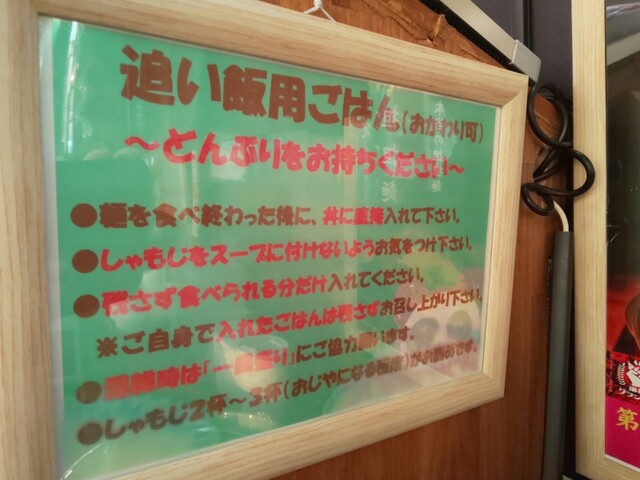 追い飯用ごはん(おかわり可)
～どんぶりをお持ちください～
●麺を食べ終わった後に、丼に直接入れて下さい。
●しゃもじをスープに付けないようお気をつけ下さい。
●残さず食べられる分だけ入れてください。
※ご自身で入れたごはんは残さずお召し上がり下さい。
●混雑時は「一回盛り」にご協力願います。
●しゃもじ2杯～3杯(おじやになる程度)がお薦めです。
第